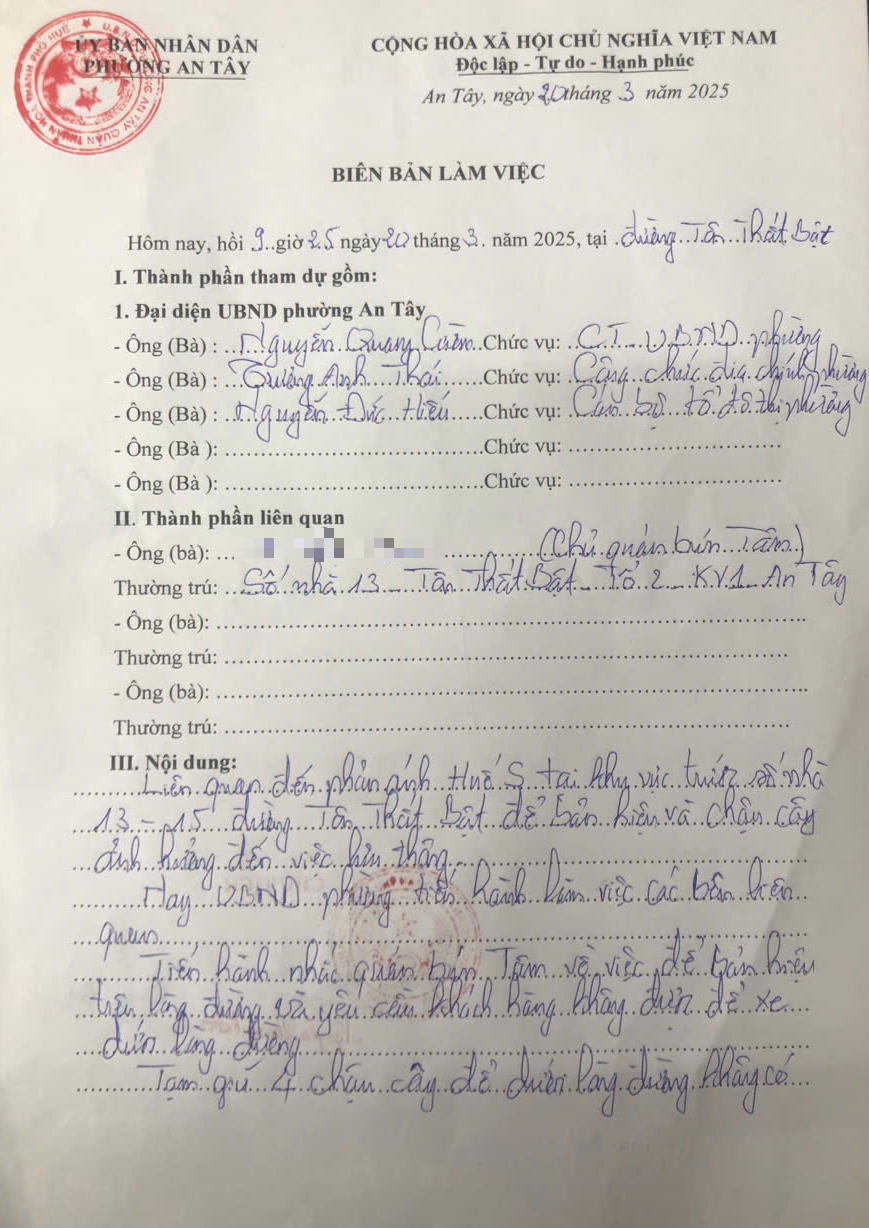 ỦY BAN NHÂN DÂN
PHƯỜNG AN TÂY
CỘNG HÒA XÃ HỘI CHỦ NGHĨA VIỆT NAM
Độc lập - Tự do - Hạnh phúc
An Tây, ngày 20 tháng 3 năm 2025
BIÊN BẢN LÀM VIỆC
Hôm nay, hồi 9 giờ 25 ngày 20 tháng 3. năm 2025, tại đường Tôn Thất Bật
I. Thành phần tham dự gồm:
1. Đại diện UBND phường An Tây
- Ông (Bà) : Nguyễn Quang Chức vụ: C.T. UBND phường
- Ông (Bà) : Trương Anh Thái Chức vụ: Công chức địa chính phường
- Ông (Bà) : Nguyễn Đức Hiếu Chức vụ: Cán bộ tổ đô thị phường
- Ông (Bà ): Chức vụ:
- Ông (Bà ): Chức vụ:
II. Thành phần liên quan
- Ông (bà): (Chủ quán bún Tâm)
Thường trú: Số nhà 13 - Tôn Thất Bật - Tổ 2 - KV1 - An Tây
- Ông (bà):
Thường trú:
- Ông (bà):
Thường trú:
III. Nội dung:
Liên quan đến phản ánh Huế S tại khu vực trước số nhà
13 - 15 đường Tôn Thất Bật để bản hiệu và chậu cây
ảnh hưởng đến việc lưu thông
Nay UBND phường tiến hành làm việc các bên liên
quan
Tiến hành nhắc quán bún Tâm về việc để bản hiệu
trên lòng đường và yêu cầu khách hàng không được để xe
dưới lòng đường
Tạm giữ 4 chậu cây để dưới lòng đường không có